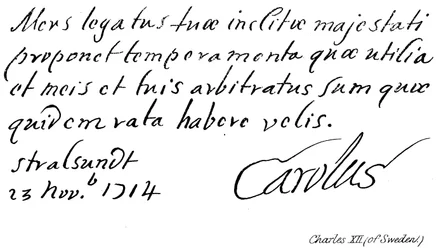 Mers legatus tuæ inclitæ majestati
proponet temperamenta quæ utilia
et meis et tuis arbitratus sum quæ
quidem rata habere velis.
Stralsundt
23 Nov.b 1714
Carolus
Charles XII (of Sweden.)